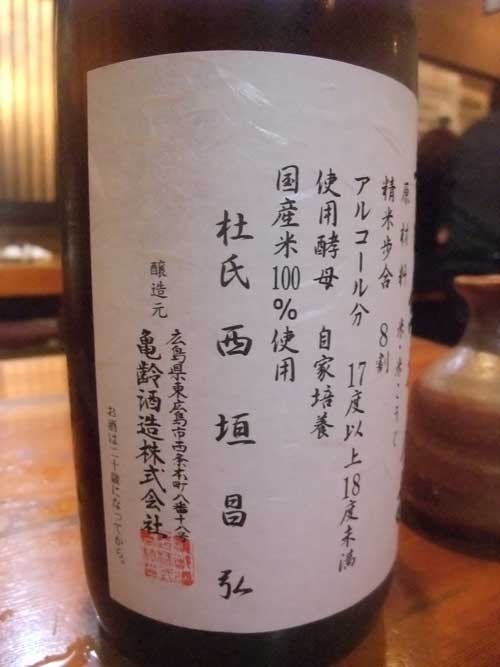 原材料 米・米こうじ
精米歩合 8割
アルコール分 17度以上18度未満
使用酵母 自家培養
国産米100%使用
杜氏 西垣昌弘
醸造元
広島県東広島市西条本町八番十八号
亀齢酒造株式会社
お酒は二十歳になってから。